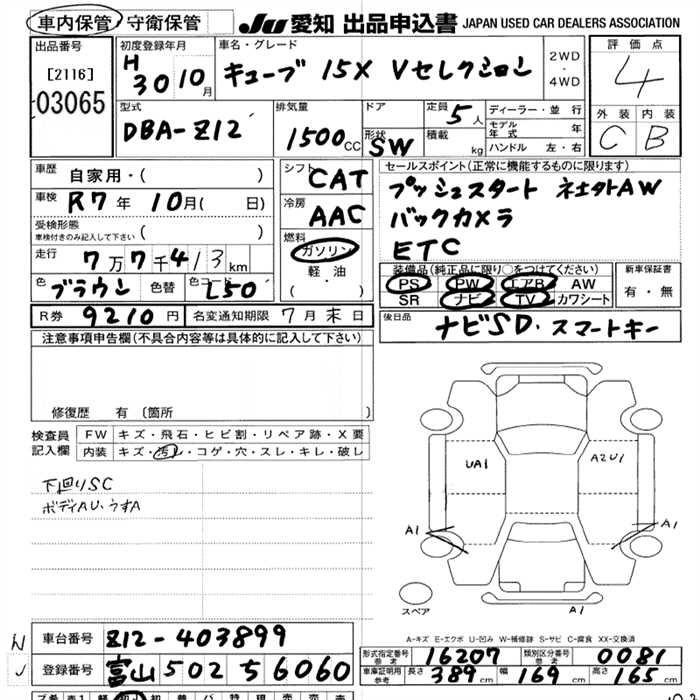 車内保管 / 守衛保管 JU 愛知 出品申込書 JAPAN USED CAR DEALERS ASSOCIATION
出品番号 [2116] 03065
初度登録年月 H 30 10月
車名・グレード キューブ 15X Vセレクション 2WD・4WD
評価点 4
外装 C 内装 B
型式 DBA-Z12
排気量 1500cc
ドア 形状 SW
定員 5人 積載 kg
ディーラー・並行
モデル年式 年
ハンドル 左・右
車歴 自家用・( )
車検 R7年 10月( 日)
受検形態 車検付きのみ記入して下さい ( )
走行 7万7千413km
色 ブラウン 色替 色コード L50
シフト CAT
冷房 AAC
燃料 ガソリン 軽油 (・)
セールスポイント(正常に機能するものに限ります)
プッシュスタート 社外AW
バックカメラ
ETC
装備品(純正品に限り○をつけてください)
PS PW エアB AW
SR ナビ TV カワシート
新車保証書 有・無
R券 9210円 名変通知期限 7月末日
後日品 ナビSD・スマートキー
注意事項申告欄(不具合内容等は具体的に記入して下さい)
修復歴 有 [箇所
検査員記入欄 FW キズ・飛石・ヒビ割・リペア跡・X要
内装 キズ・汚レ・コゲ・穴・スレ・キレ・破レ
下回りSC
ボディAU、うすA
UA1 A2U1
A1 A1
スペア A1
A-キズ E-エクボ U-凹み W-補修跡 S-サビ C-腐食 XX-交換済
車台番号 Z12-403899
登録番号 富山502ち6060
形式指定番号 参考 16207 類別区分番号 参考 0081
車庫証明用 参考 長さ 389cm 幅 169cm 高さ 165cm